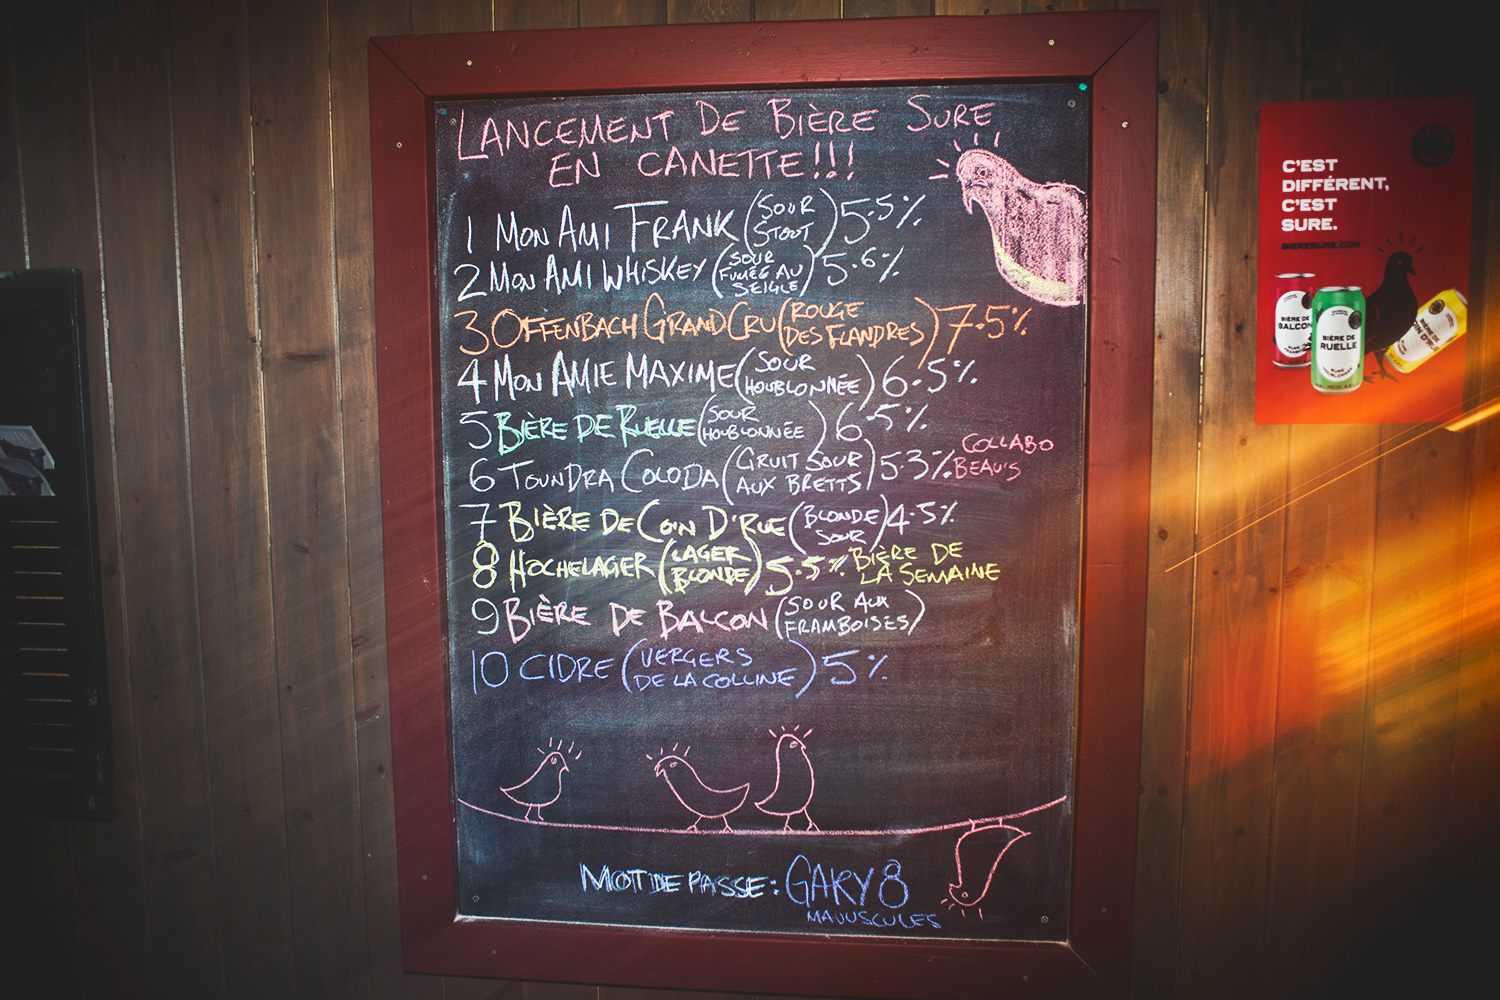 LANCEMENT DE BIÈRE SURE
EN CANETTE!!!
1 MON AMI FRANK (SOUR STOUT) 5.5%
2 MON AMI WHISKEY (SOUR FUMÉE AU SEIGLE) 5.6%
3 OFFENBACH GRAND CRU (ROUGE DES FLANDRES) 7.5%
4 MON AMIE MAXIME (SOUR HOUBLONNÉE) 6.5%
5 BIÈRE DE RUELLE (SOUR HOUBLONNÉE) 6.5%
6 TOUNDRA COLODA (GRUIT SOUR AUX BRETTS) 5.3% COLLABO BEAU'S
7 BIÈRE DE COIN D'RUE (BLONDE SOUR) 4.5%
8 HOCHELAGER (LAGER BLONDE) 5.5% BIÈRE DE LA SEMAINE
9 BIÈRE DE BALCON (SOUR AUX FRAMBOISES)
10 CIDRE (VERGERS DE LA COLLINE) 5%
MOT DE PASSE: GARY8
MAJUSCULES
C'EST
DIFFÉRENT,
C'EST
SURE.
BIERESURE.COM
BIÈRE DE
BALCON
BIÈRE DE
RUELLE
BIÈRE DE
COIN D'RUE